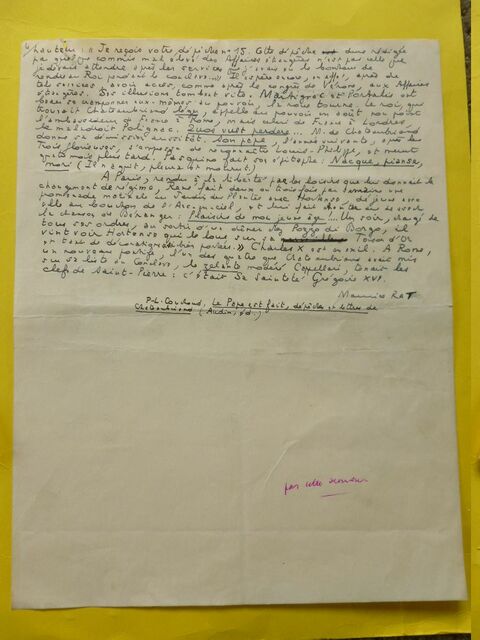 hauteur : « Je reçois votre dépêche n° 15. Cette dépêche dans rédigée
par quelque commis mal élevé des Affaires étrangères n'est pas celle que
je devais attendre après les services que j'avais eu le bonheur de
rendre au Roi pendant le conclave... » Il espère encore, en effet, après de
tels services, avoir accès, comme après le congrès de Vérone, aux Affaires
étrangères. Ses illusions tombent vite. Martignac et Portalis ont
beau se cramponner eux-mêmes au pouvoir, la roue tourne. Le roi, que
trouvait Chateaubriand léger, appelle au pouvoir en août non pas
l'ambassadeur de France à Rome, mais celui de France à Londres
le maladroit Polignac. Quos vult perdere... M. de Chateaubriand
donne sa démission aussitôt. Son pape, l'année suivante, après les
Trois Glorieuses, s'empresse de reconnaître Louis-Philippe, et meurt
quatre mois plus tard. Pasquino fait son épitaphe : Nacque, pianse,
morì (Il naquit, pleura et mourut.)
A Paris, rendu à la liberté par les loisirs que lui donnait le
changement de régime, René fait deux ou trois fois par semaine une
promenade matinale au Jardin des Plantes avec Hortense, déjeune avec
elle au bouchon de l'Arc-en-ciel, et lui fait chanter au dessert
la chanson de Béranger : Plaisirs de mon jeune âge... Un soir, chargé de
tous ses ordres, au sortir d'un dîner chez Pozzo de Borgo, il
vint voir Hortense que le loua sur sa Toison d'Or
et tant de décorations très portées. » Charles X est en exil. A Rome,
un nouveau pontife, l'un des quatre que Chateaubriand avait mis
sur sa liste du conclave, le zelante modéré Cappellari, tenait les
clefs de Saint-Pierre : c'était Sa Sainteté Grégoire XVI.
Maurice RAT
P.-L. Couchoud, Le Pape est fait, dépêches et lettres de
Chateaubriand (Audin, éd.)
par cette dernière